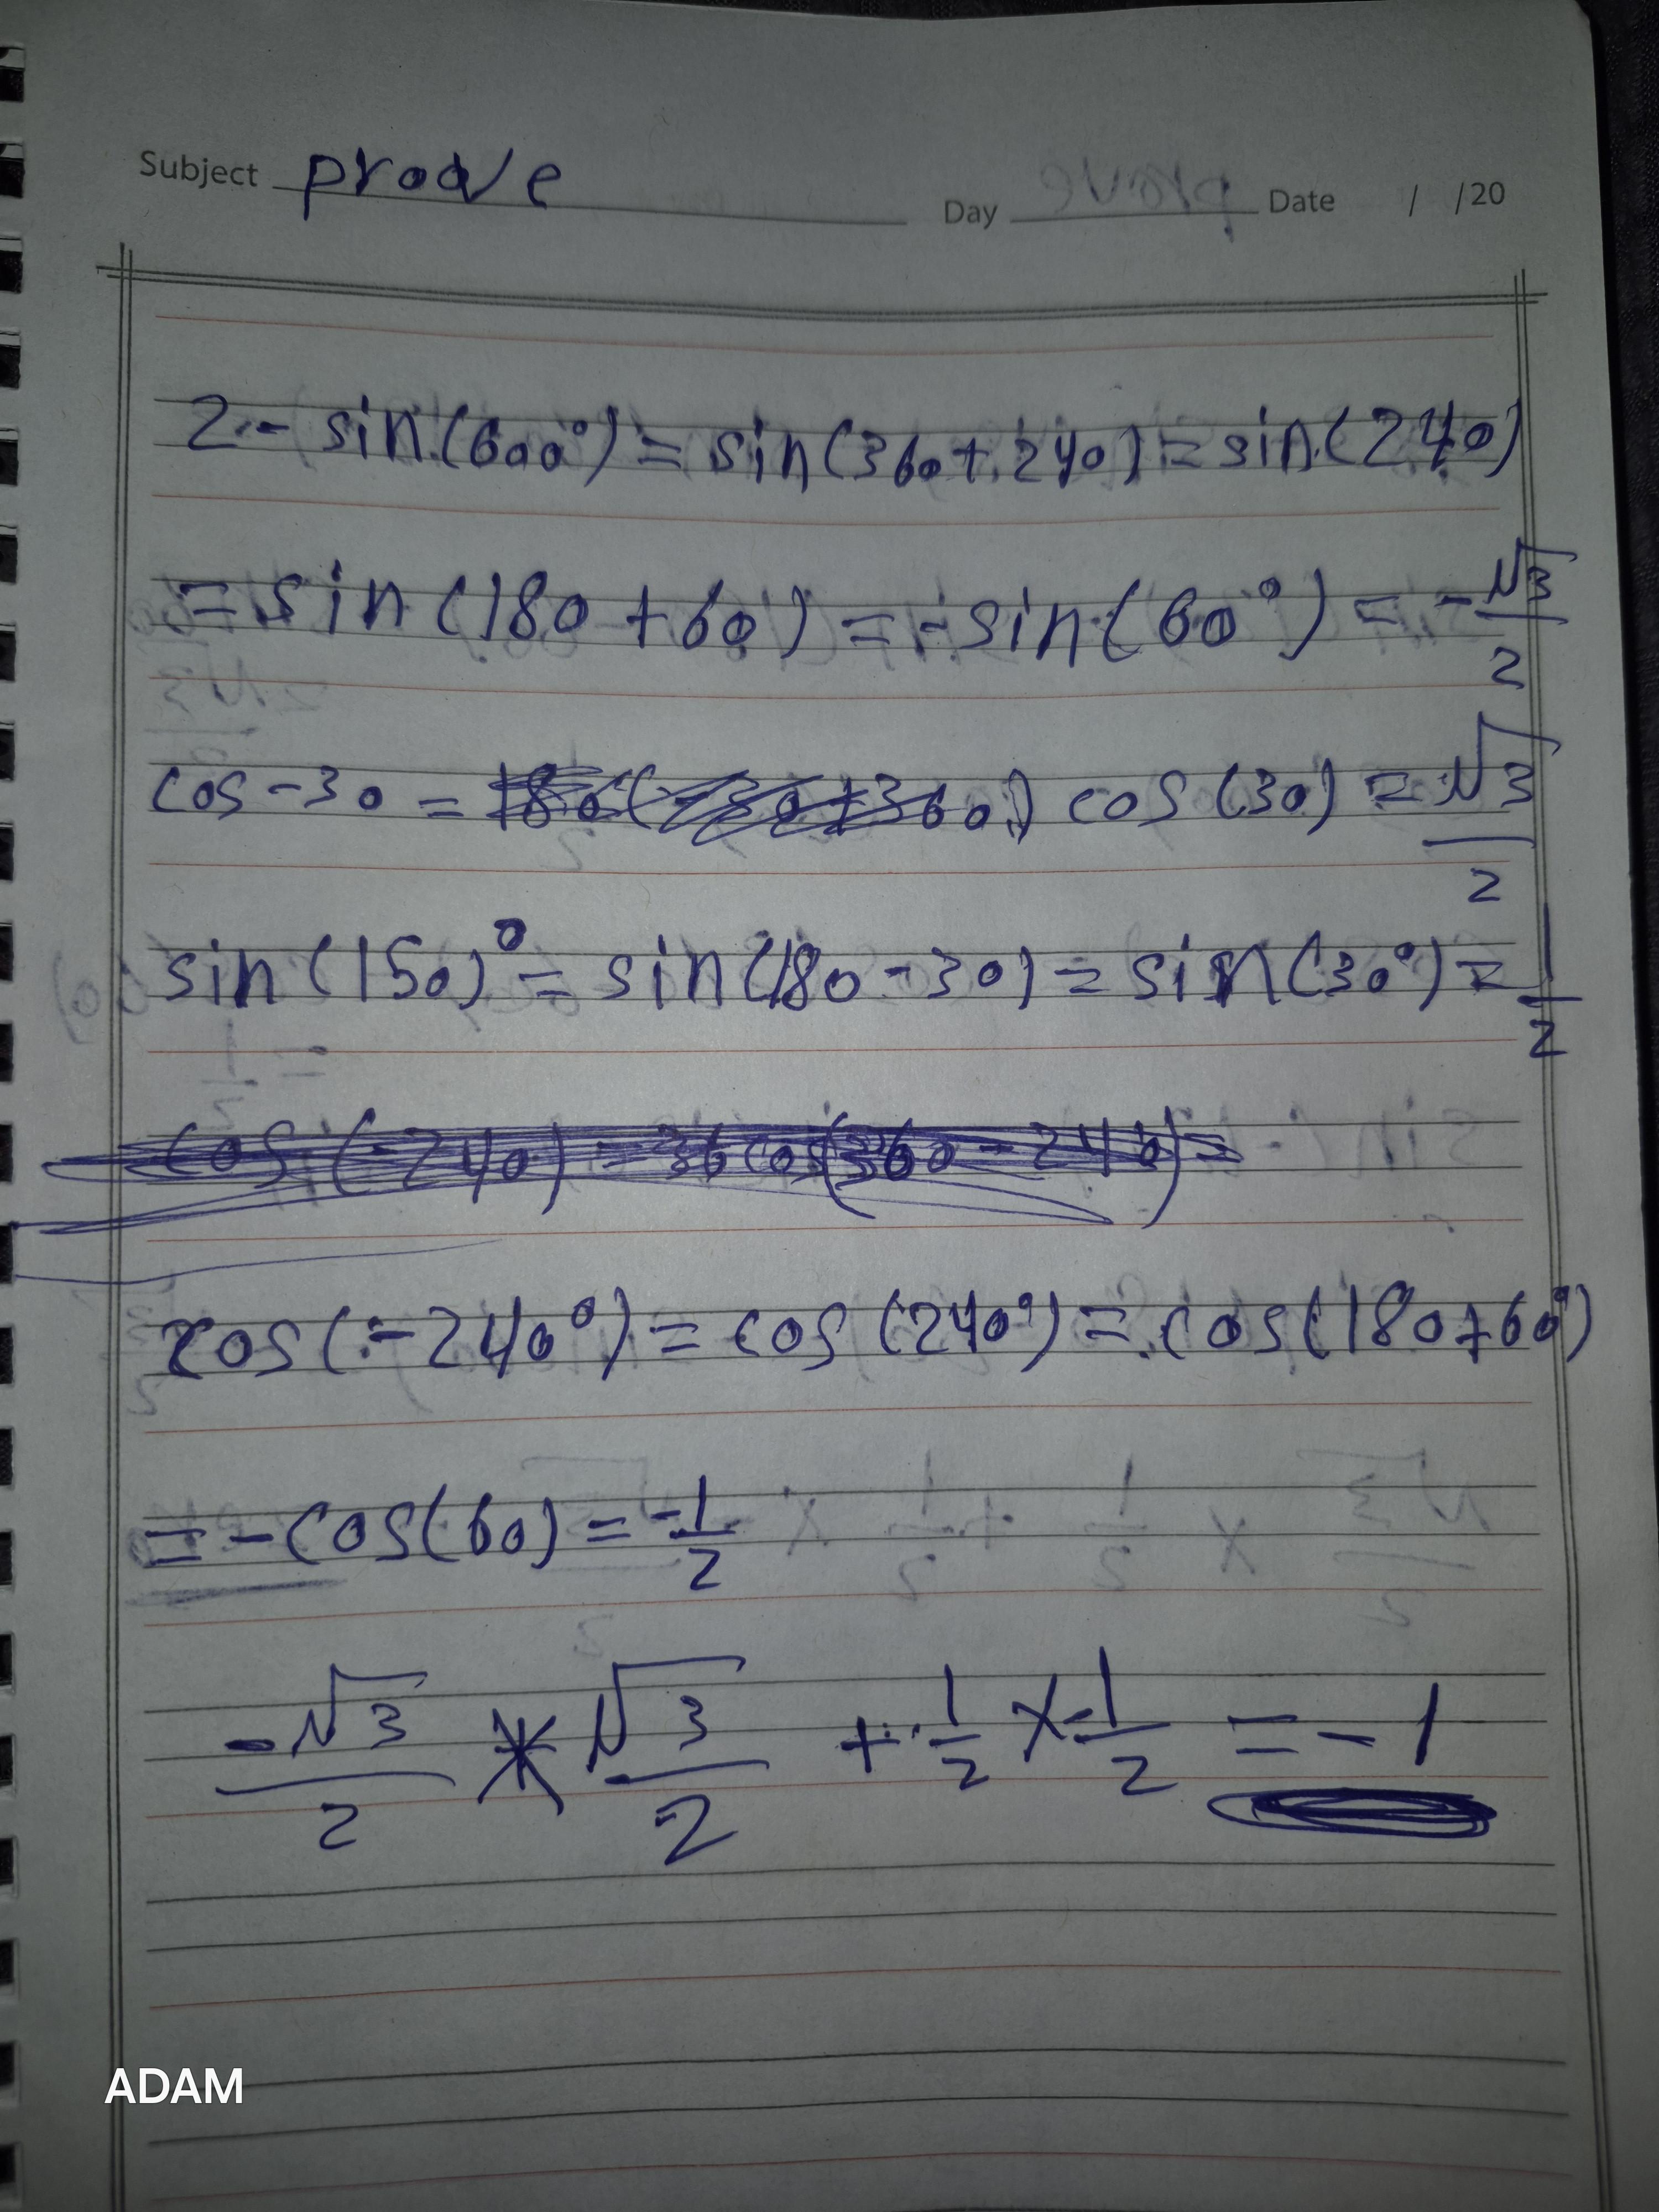 Subject prove Day Date / /20
2-- sin(600°) = sin(360+240) = sin(240)
= sin(180+60) = -sin(60°) = -√3/2
cos-30 = cos(30) = √3/2
sin(150)° = sin(180-30) = sin(30°) = 1/2
cos(-240) = 36 cos(360-240) =
cos(-240°) = cos(240°) = cos(180+60°)
= -cos(60) = -1/2
-√3/2 * √3/2 + 1/2 × -1/2 = -1
ADAM